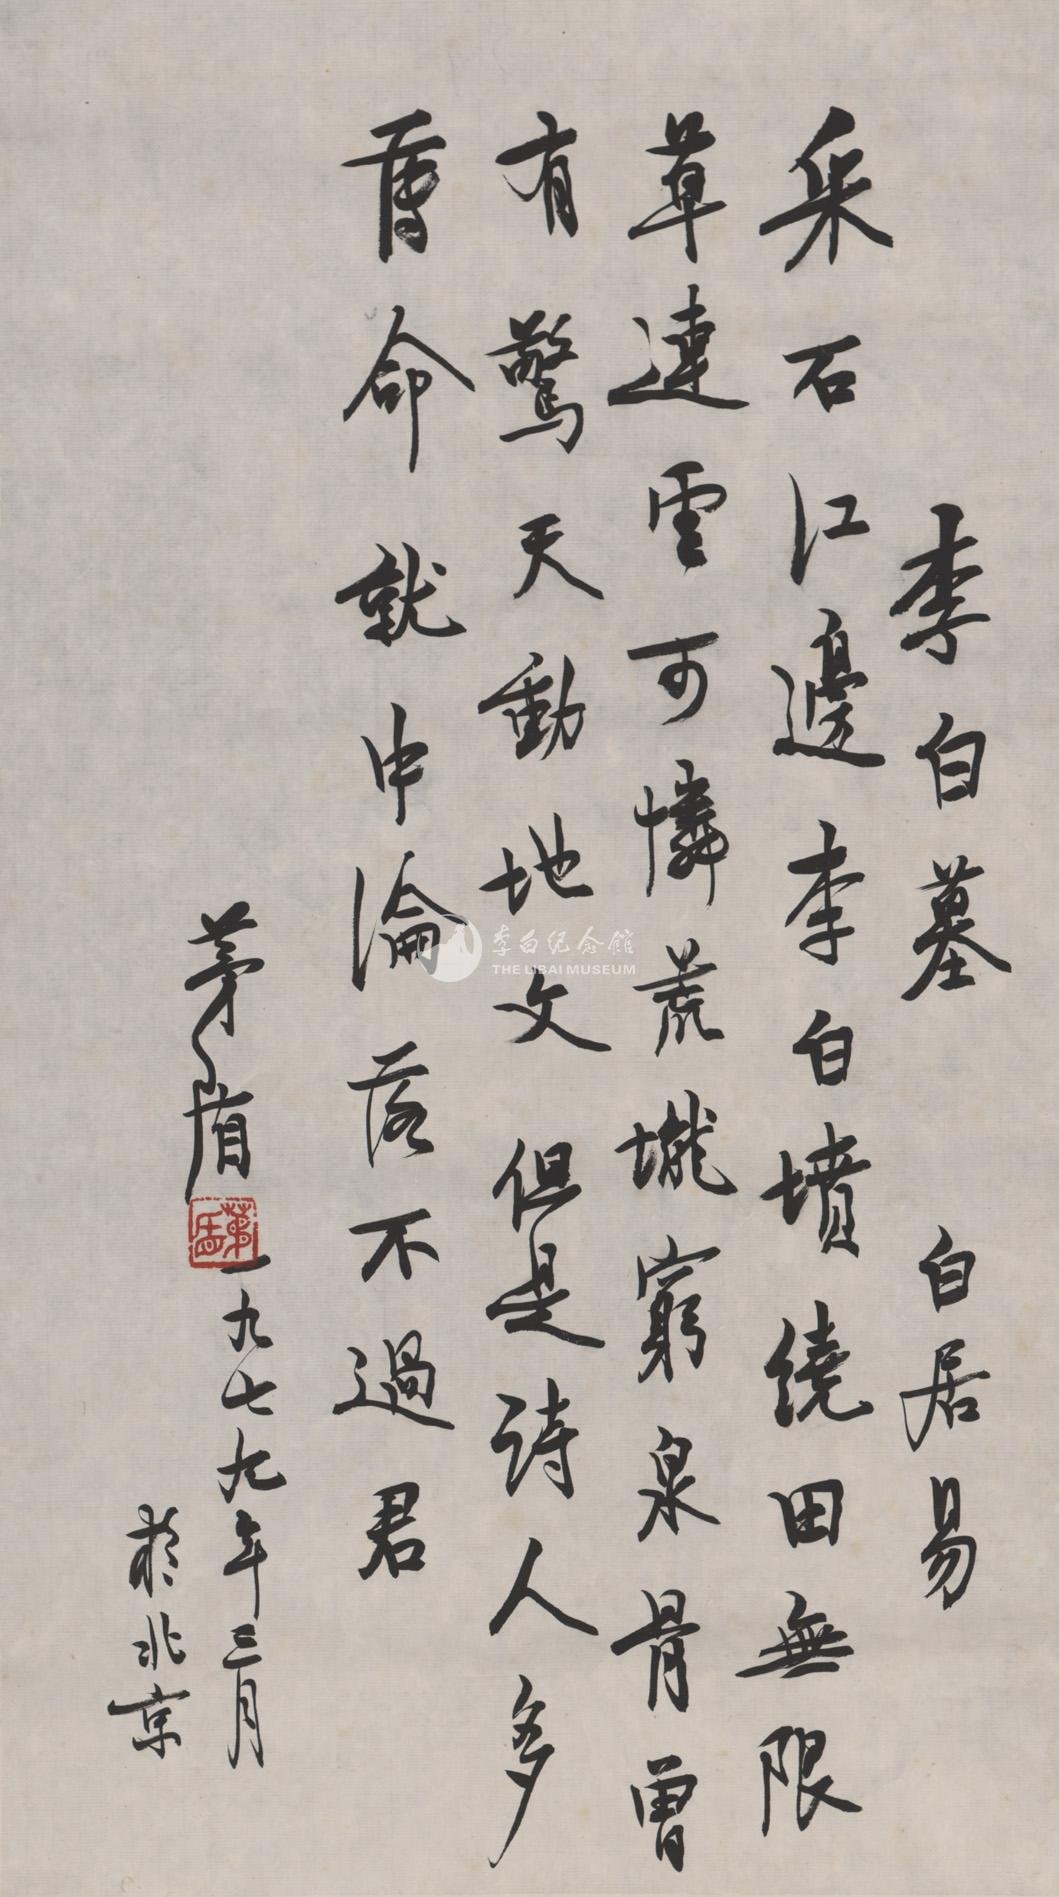 李白墓 白居易
采石江邊李白墳繞田無限
草連雲可憐荒壠窮泉骨曾
有驚天動地文但是詩人多
薄命就中淪落不過君
茅盾
一九七九年三月
於北京
茅盾
李白纪念馆
THE LIBAI MUSEUM